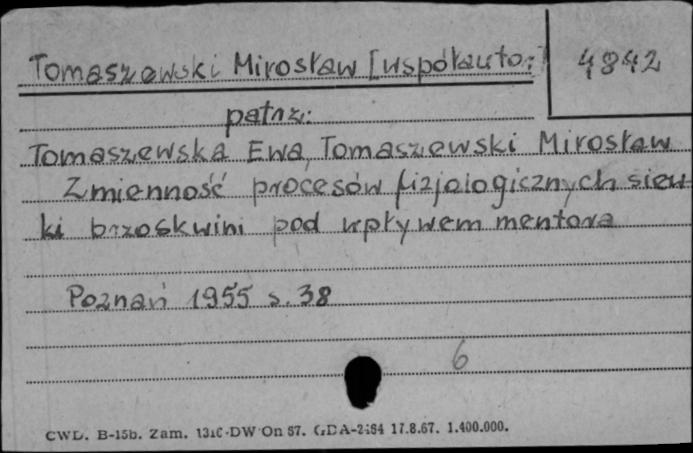 Tomaszewski Mirosław [współautor]
4842
patrz:
Tomaszewska Ewa, Tomaszewski Mirosław
Zmienność procesów fizjologicznych siew-
ki brzoskwini pod wpływem mentora
Poznań 1955 s. 38
6
CWD. B-15b. Zam. DW On 67. GDA-2484 17.8.67. 1.400.000.